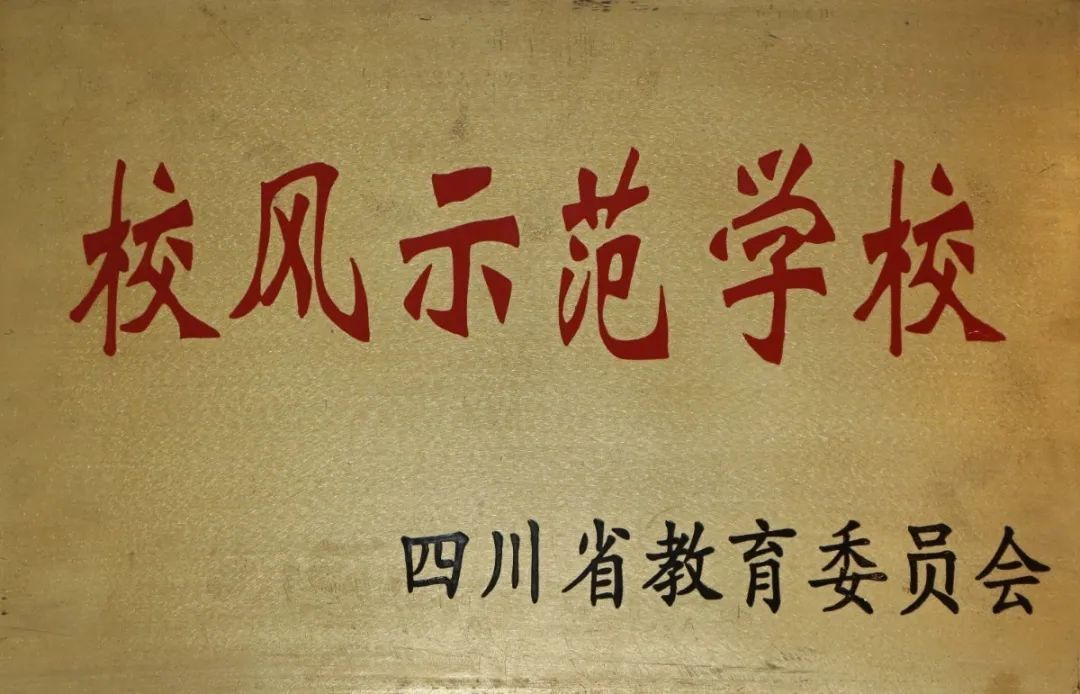 校风示范学校
四川省教育委员会